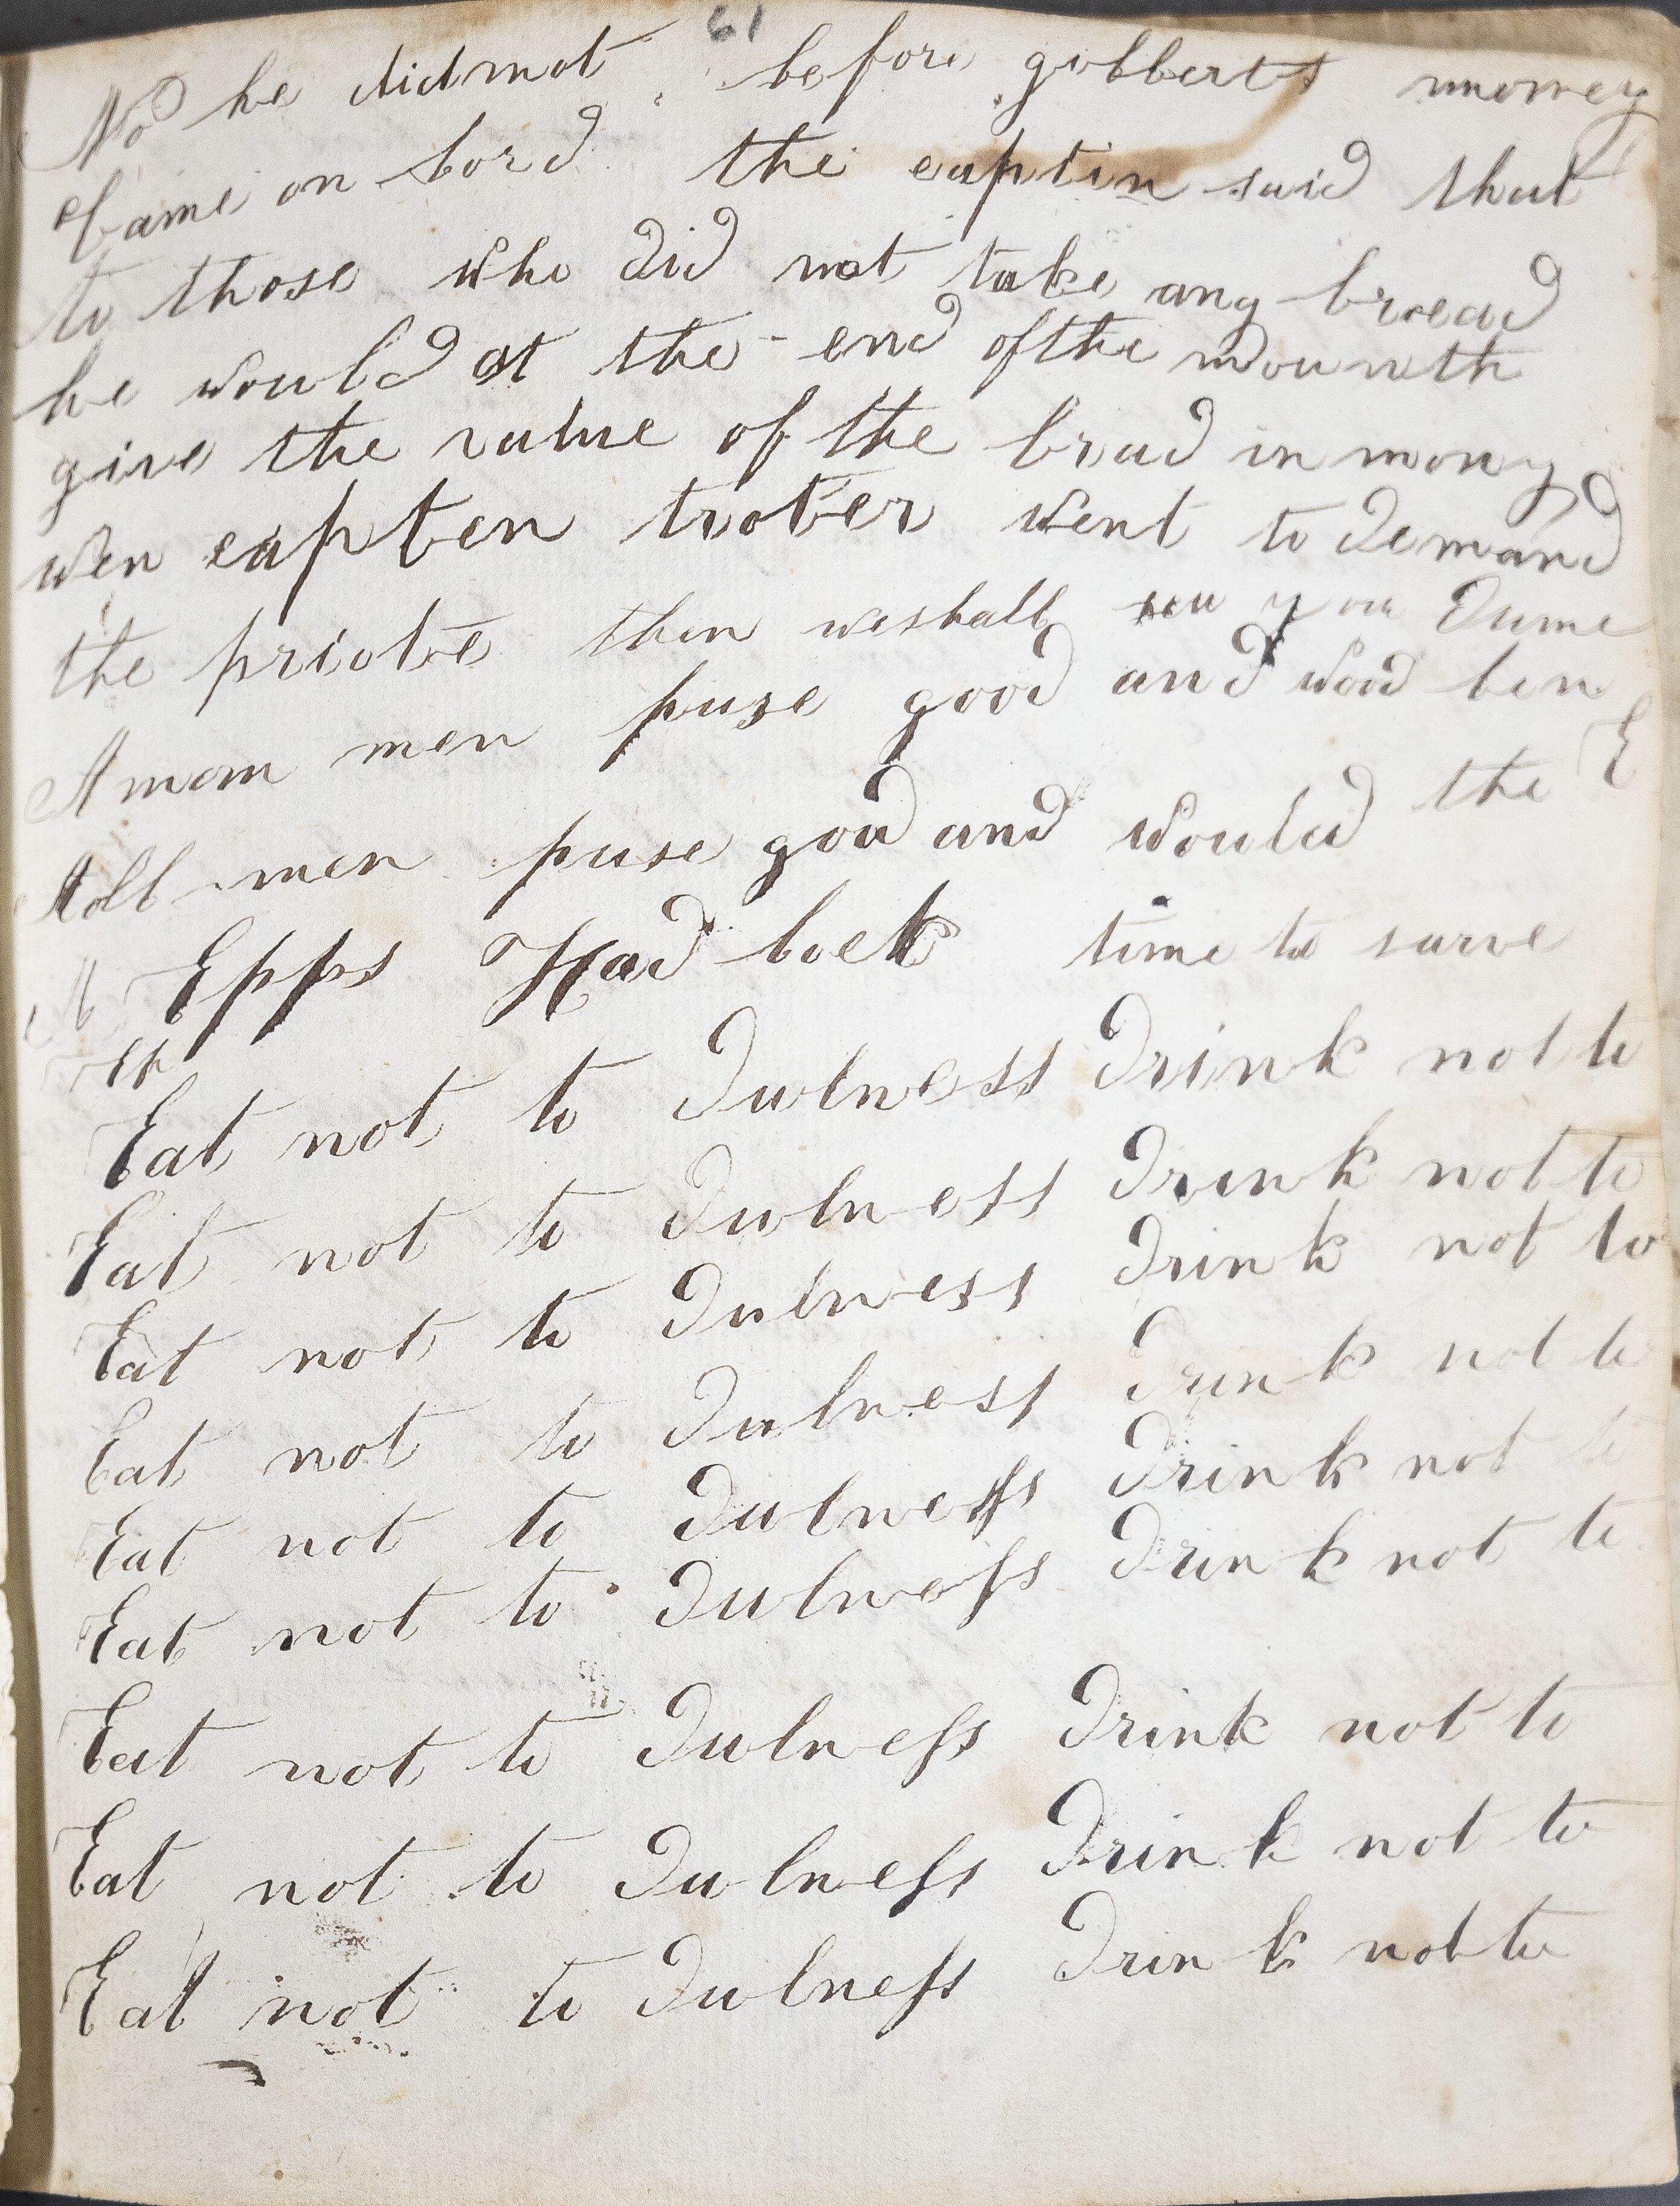 61
No he didmot before gobberts mmoney
Came on bord the captin said that
to those who did not take any bread
he would at the end ofthe mounth
give the value of the bread in mony
wen capten troter went to demand
the priote then weshall you
Amom men puze good and wod ben
Aoll men puse good and would the E
Epps Had boek time to sarve
Ep
Eat not to Dulness Drink not to
Eat not to Dulness Drink not to
Eat not to Dulness Drink not to
Eat not to Dulness Drink not to
Eat not to Dulness Drink not to
Eat not to Dulness Drink not to
Eat not to Dulness Drink not to
Eat not to Dulness Drink not to
Eat not to Dulness Drink not to